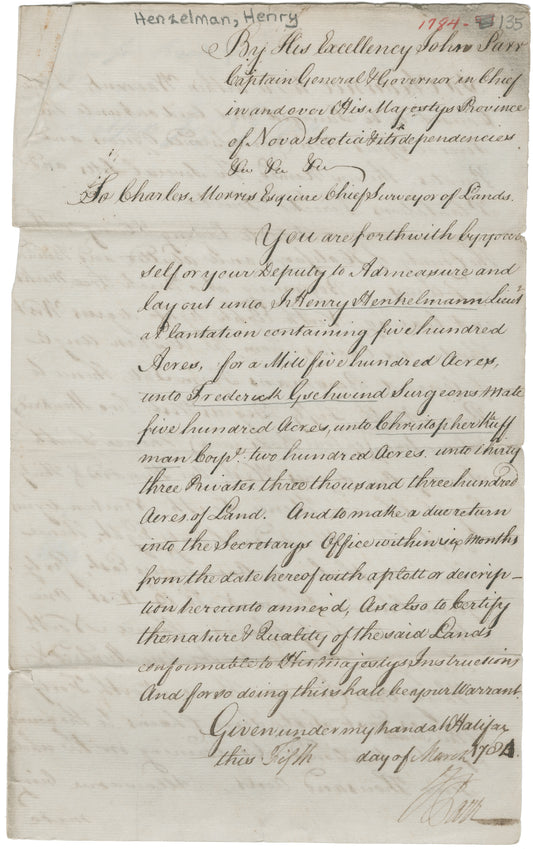 Henzelman, Henry
1784- 135
By His Excellency John Parr
Captain General & Governor in Chief
in and over His Majestys Province
of Nova Scotia & its dependencies
&c &c &c
To Charles Morris Esquire Chief Surveyor of Lands.
You are forthwith by your
self or your Deputy to Admeasure and
lay out unto Jn Henry Henkelmann Lieut
a Plantation containing five hundred
Acres, for a Mill five hundred Acres,
unto Frederick Gschwind Surgeons Mate
five hundred Acres, unto Christopher Kuff
man Corpl. two hundred Acres. unto thirty
three Privates three thousand three hundred
Acres of Land. And to make a due return
into the Secretarys Office within six Months
from the date hereof with a plott or descrip-
tion hereunto annex'd, As also to Certify
the nature & Quality of the said Lands
conformable to His Majestys Instructions
And for so doing this shall be your Warrant.
Given under my hand at Halifax
this Fifth day of March 1784.
J Parr